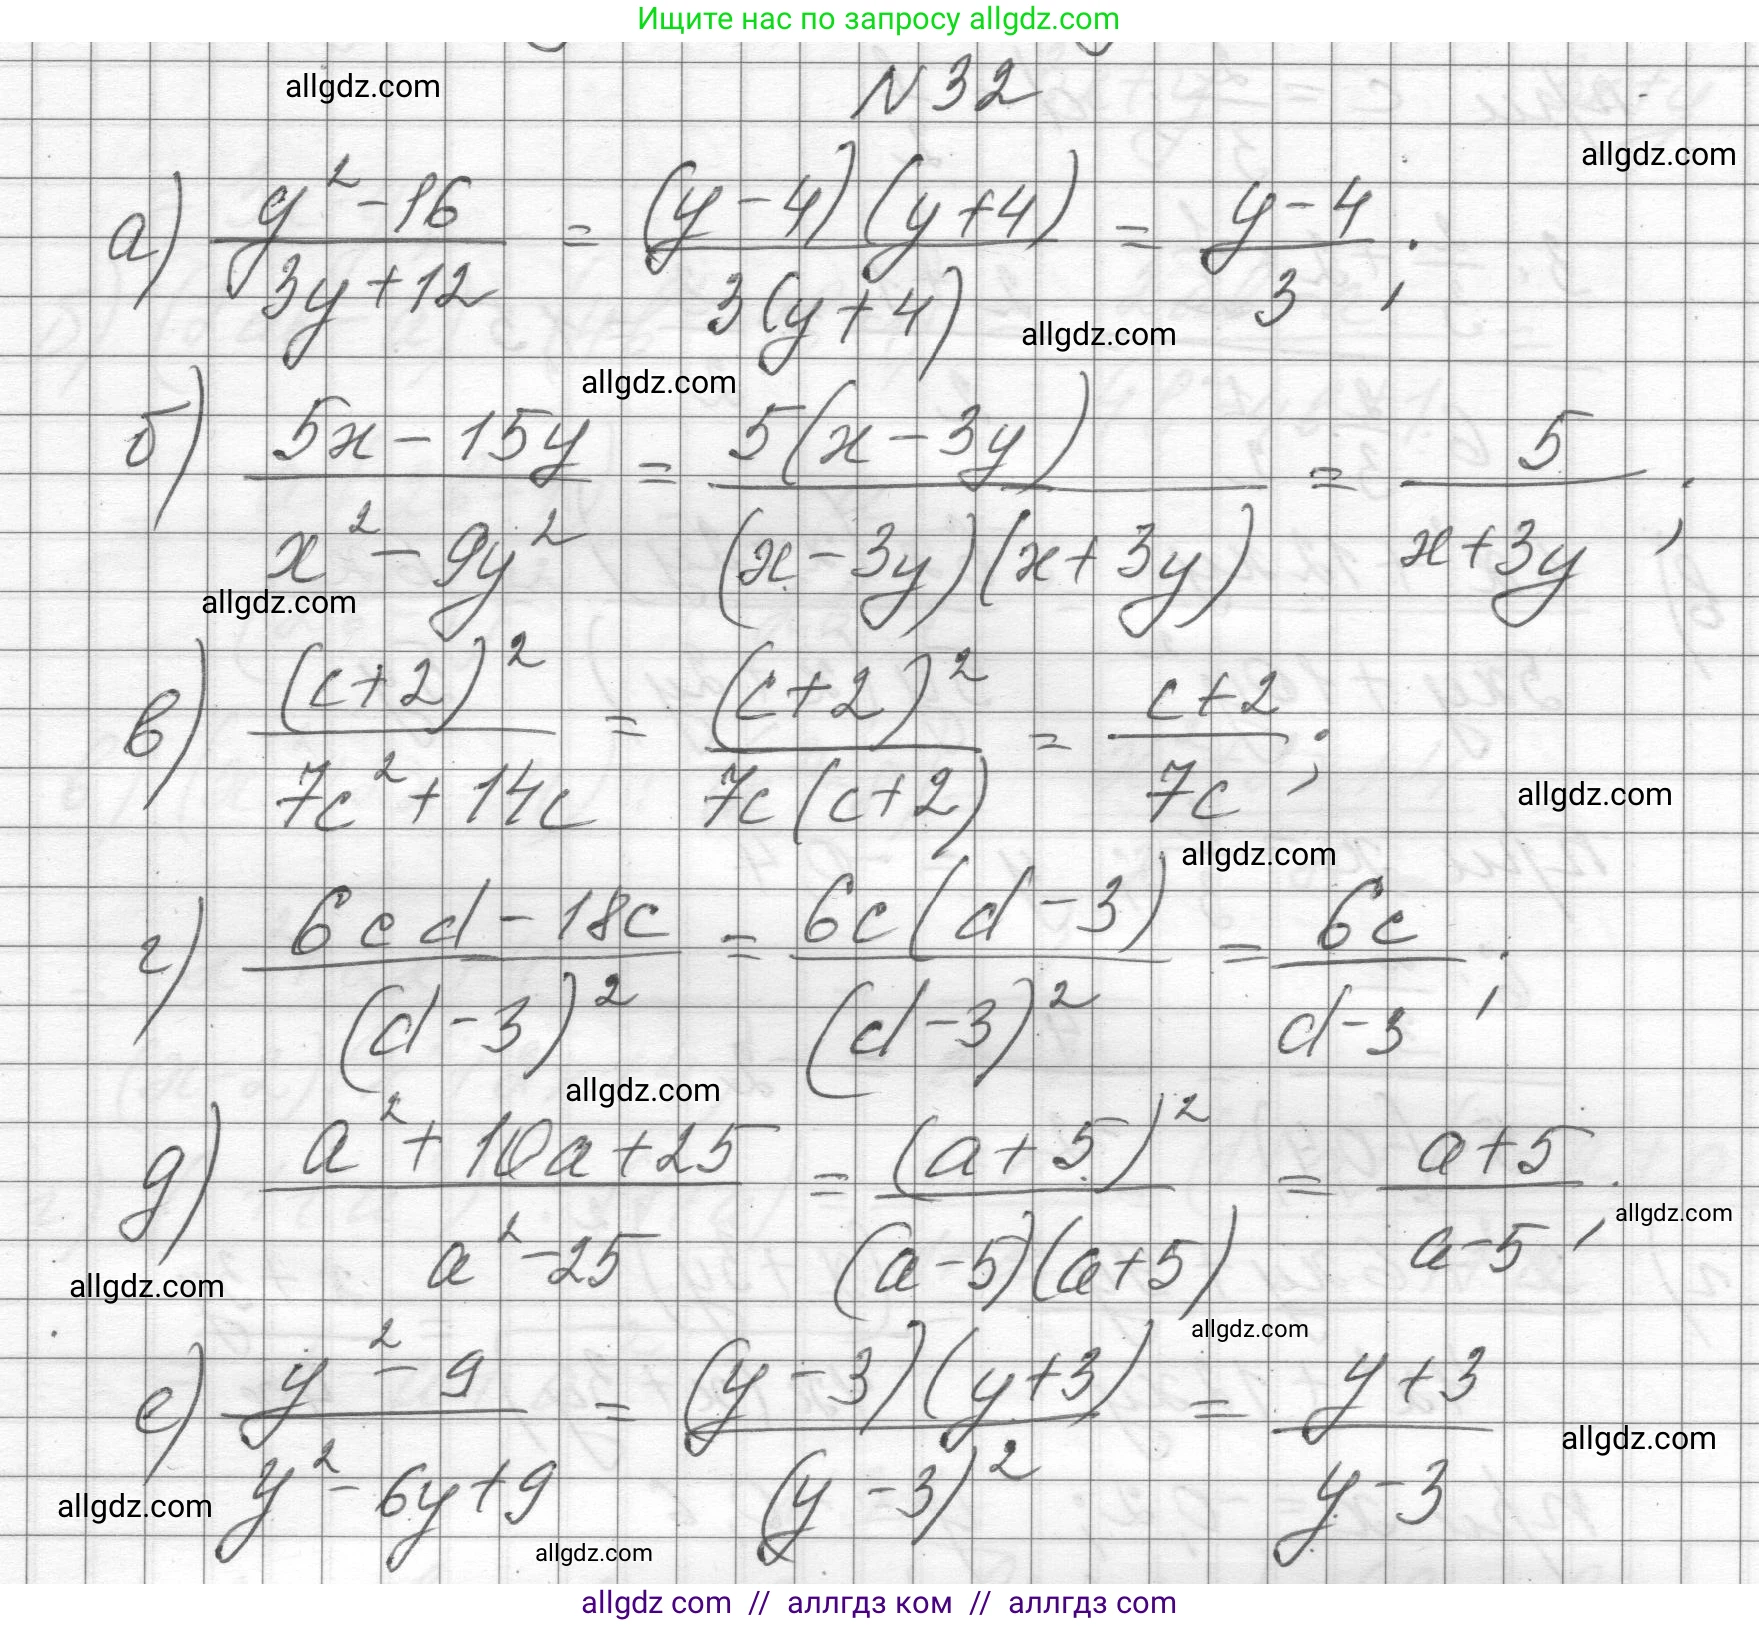 Ищите нас по запросу allgdz.com
allgdz.com
N 32
allgdz.com
а) (y² - 16)/(3y + 12) = ((y - 4)(y + 4))/(3(y + 4)) = (y - 4)/3 ;
allgdz.com
allgdz.com
б) (5x - 15y)/(x² - 9y²) = (5(x - 3y))/((x - 3y)(x + 3y)) = 5/(x + 3y) ;
allgdz.com
в) (c + 2)²/(7c² + 14c) = (c + 2)²/(7c(c + 2)) = (c + 2)/(7c) ;
allgdz.com
allgdz.com
г) (6cd - 18c)/(d - 3)² = (6c(d - 3))/(d - 3)² = 6c/(d - 3) ;
allgdz.com
д) (a² + 10a + 25)/(a² - 25) = (a + 5)²/((a - 5)(a + 5)) = (a + 5)/(a - 5) ;
allgdz.com
allgdz.com
allgdz.com
е) (y² - 9)/(y² - 6y + 9) = ((y - 3)(y + 3))/(y - 3)² = (y + 3)/(y - 3)
allgdz.com
allgdz.com
allgdz.com
allgdz com // аллгдз ком // аллгдз com